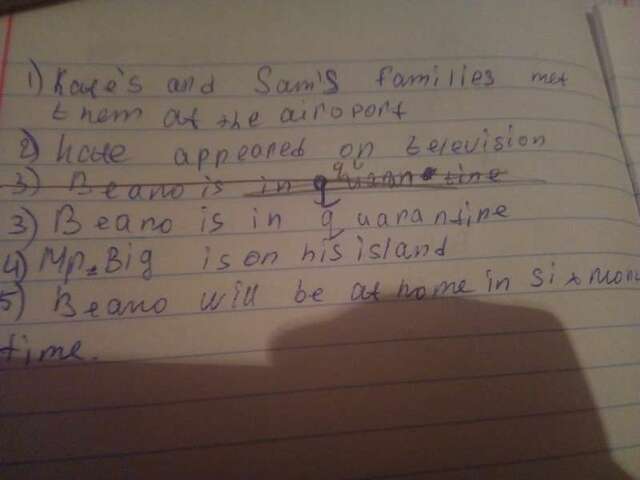 1) Kate's and Sam's families met
them at the airoport
2) Kate appeared on television
3) Beano is in quarantine
3) Beano is in quarantine
4) Mr. Big is on his island
5) Beano will be at home in six mon
time.